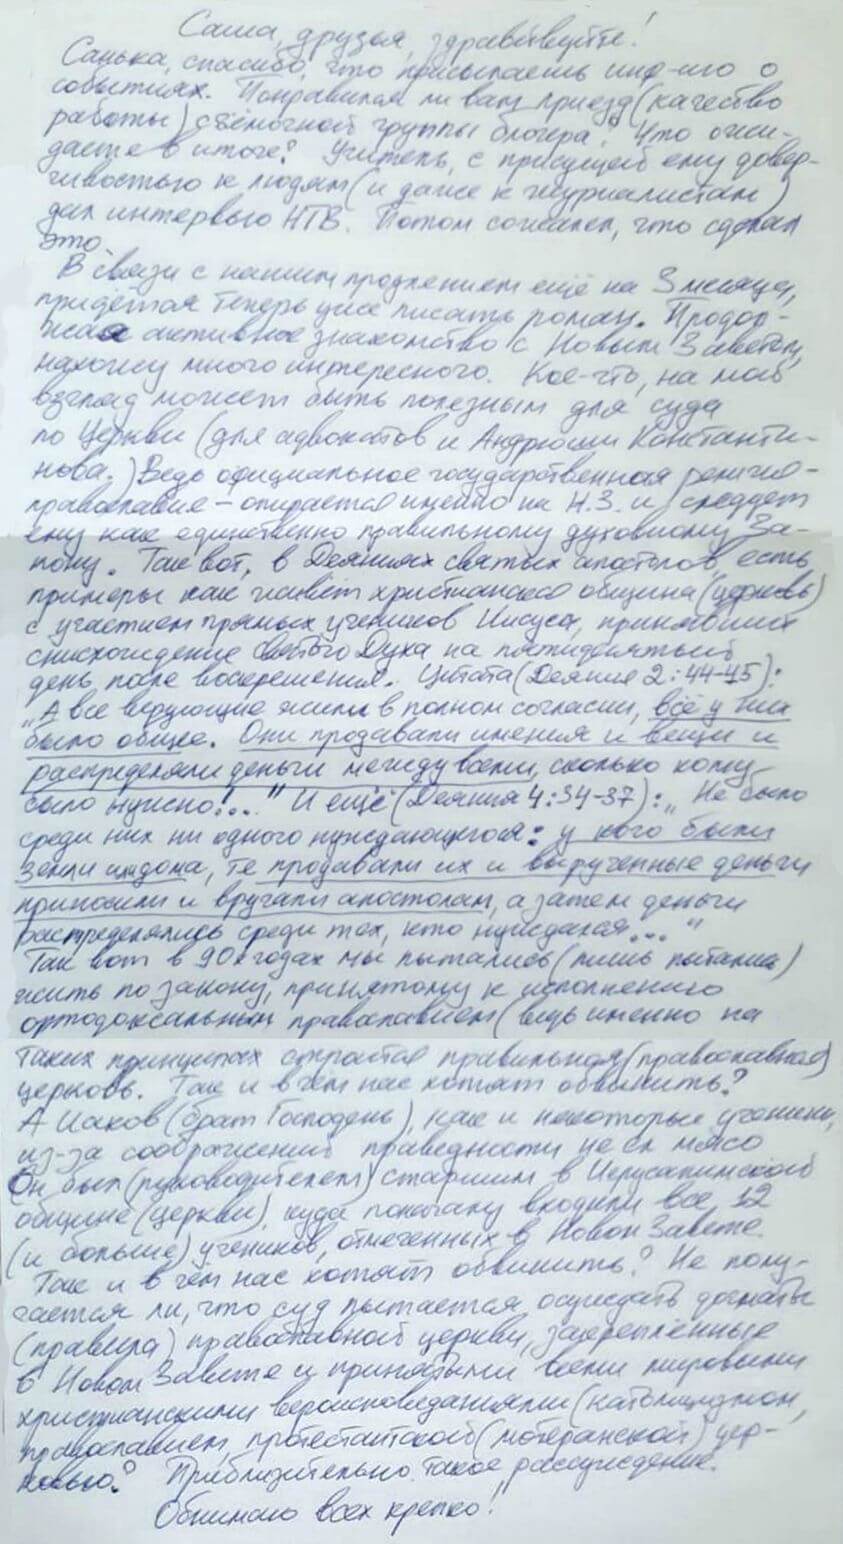 Саша, друзья, здравствуйте!
Санька, спасибо, что присылаешь инф-ию о
событиях. Понравился ли вам приезд (качество
работы) съёмочной группы блогера? Что ожи-
даете в итоге? Учитель, с присущей ему довер-
чивостью к людям (и даже к журналистам)
дал интервью НТВ. Потом сожалел, что сделал
это.
В связи с нашим продлением ещё на 3 месяца,
придётся теперь уже писать роман. Продол-
жая активное знакомство с Новым Заветом,
нахожу много интересного. Кое-что, на мой
взгляд может быть полезным для суда
по Церкви (для адвокатов и Андрюши Константи-
нова.) Ведь официальное государственная религия -
православие - опирается именно на Н.З. и следует
ему как единственно правильному духовному За-
кону. Так вот, в „Деяниях святых апостолов" есть
примеры как живёт христианская община (церковь)
с участием прямых учеников Иисуса, принявших
снисхождение святого Духа на пятидесятый
день после воскрешения. Цитата (Деяния 2:44-45):
„А все верующие жили в полном согласии, всё у них
было общее. Они продавали имения и вещи и
распределяли деньги между всеми, сколько кому
было нужно!..." И ещё (Деяния 4:34-37): „Не было
среди них ни одного нуждающегося: у кого были
земли или дома, те продавали их и вырученные деньги
приносили и вручали апостолам, а затем деньги
распределялись среди тех, кто нуждался..."
Так вот в 90х годах мы пытались (лишь пытались)
жить по закону, принятому к исполнению
ортодоксальным православием (ведь именно на
таких принципах строится правильная (православная)
церковь. Так и в чём нас хотят обвинить?
А Иаков (брат Господень), как и некоторые ученики,
из-за соображений праведности не ел мясо
Он был (руководителем) старшим в Иерусалимской
общине (церкви), куда поначалу входили все 12
(и больше) учеников, отмеченных в Новом Завете.
Так и в чём нас хотят обвинить? Не полу-
чается ли, что суд пытается осуждать догматы
(правила) православной церкви, закреплённые
в Новом Завете и принятыми всеми мировыми
христианскими вероисповеданиями (католицизмом,
православием, протестантской (лютеранской) цер-
ковью? Приблизительно такое рассуждение.
Обнимаю всех крепко!